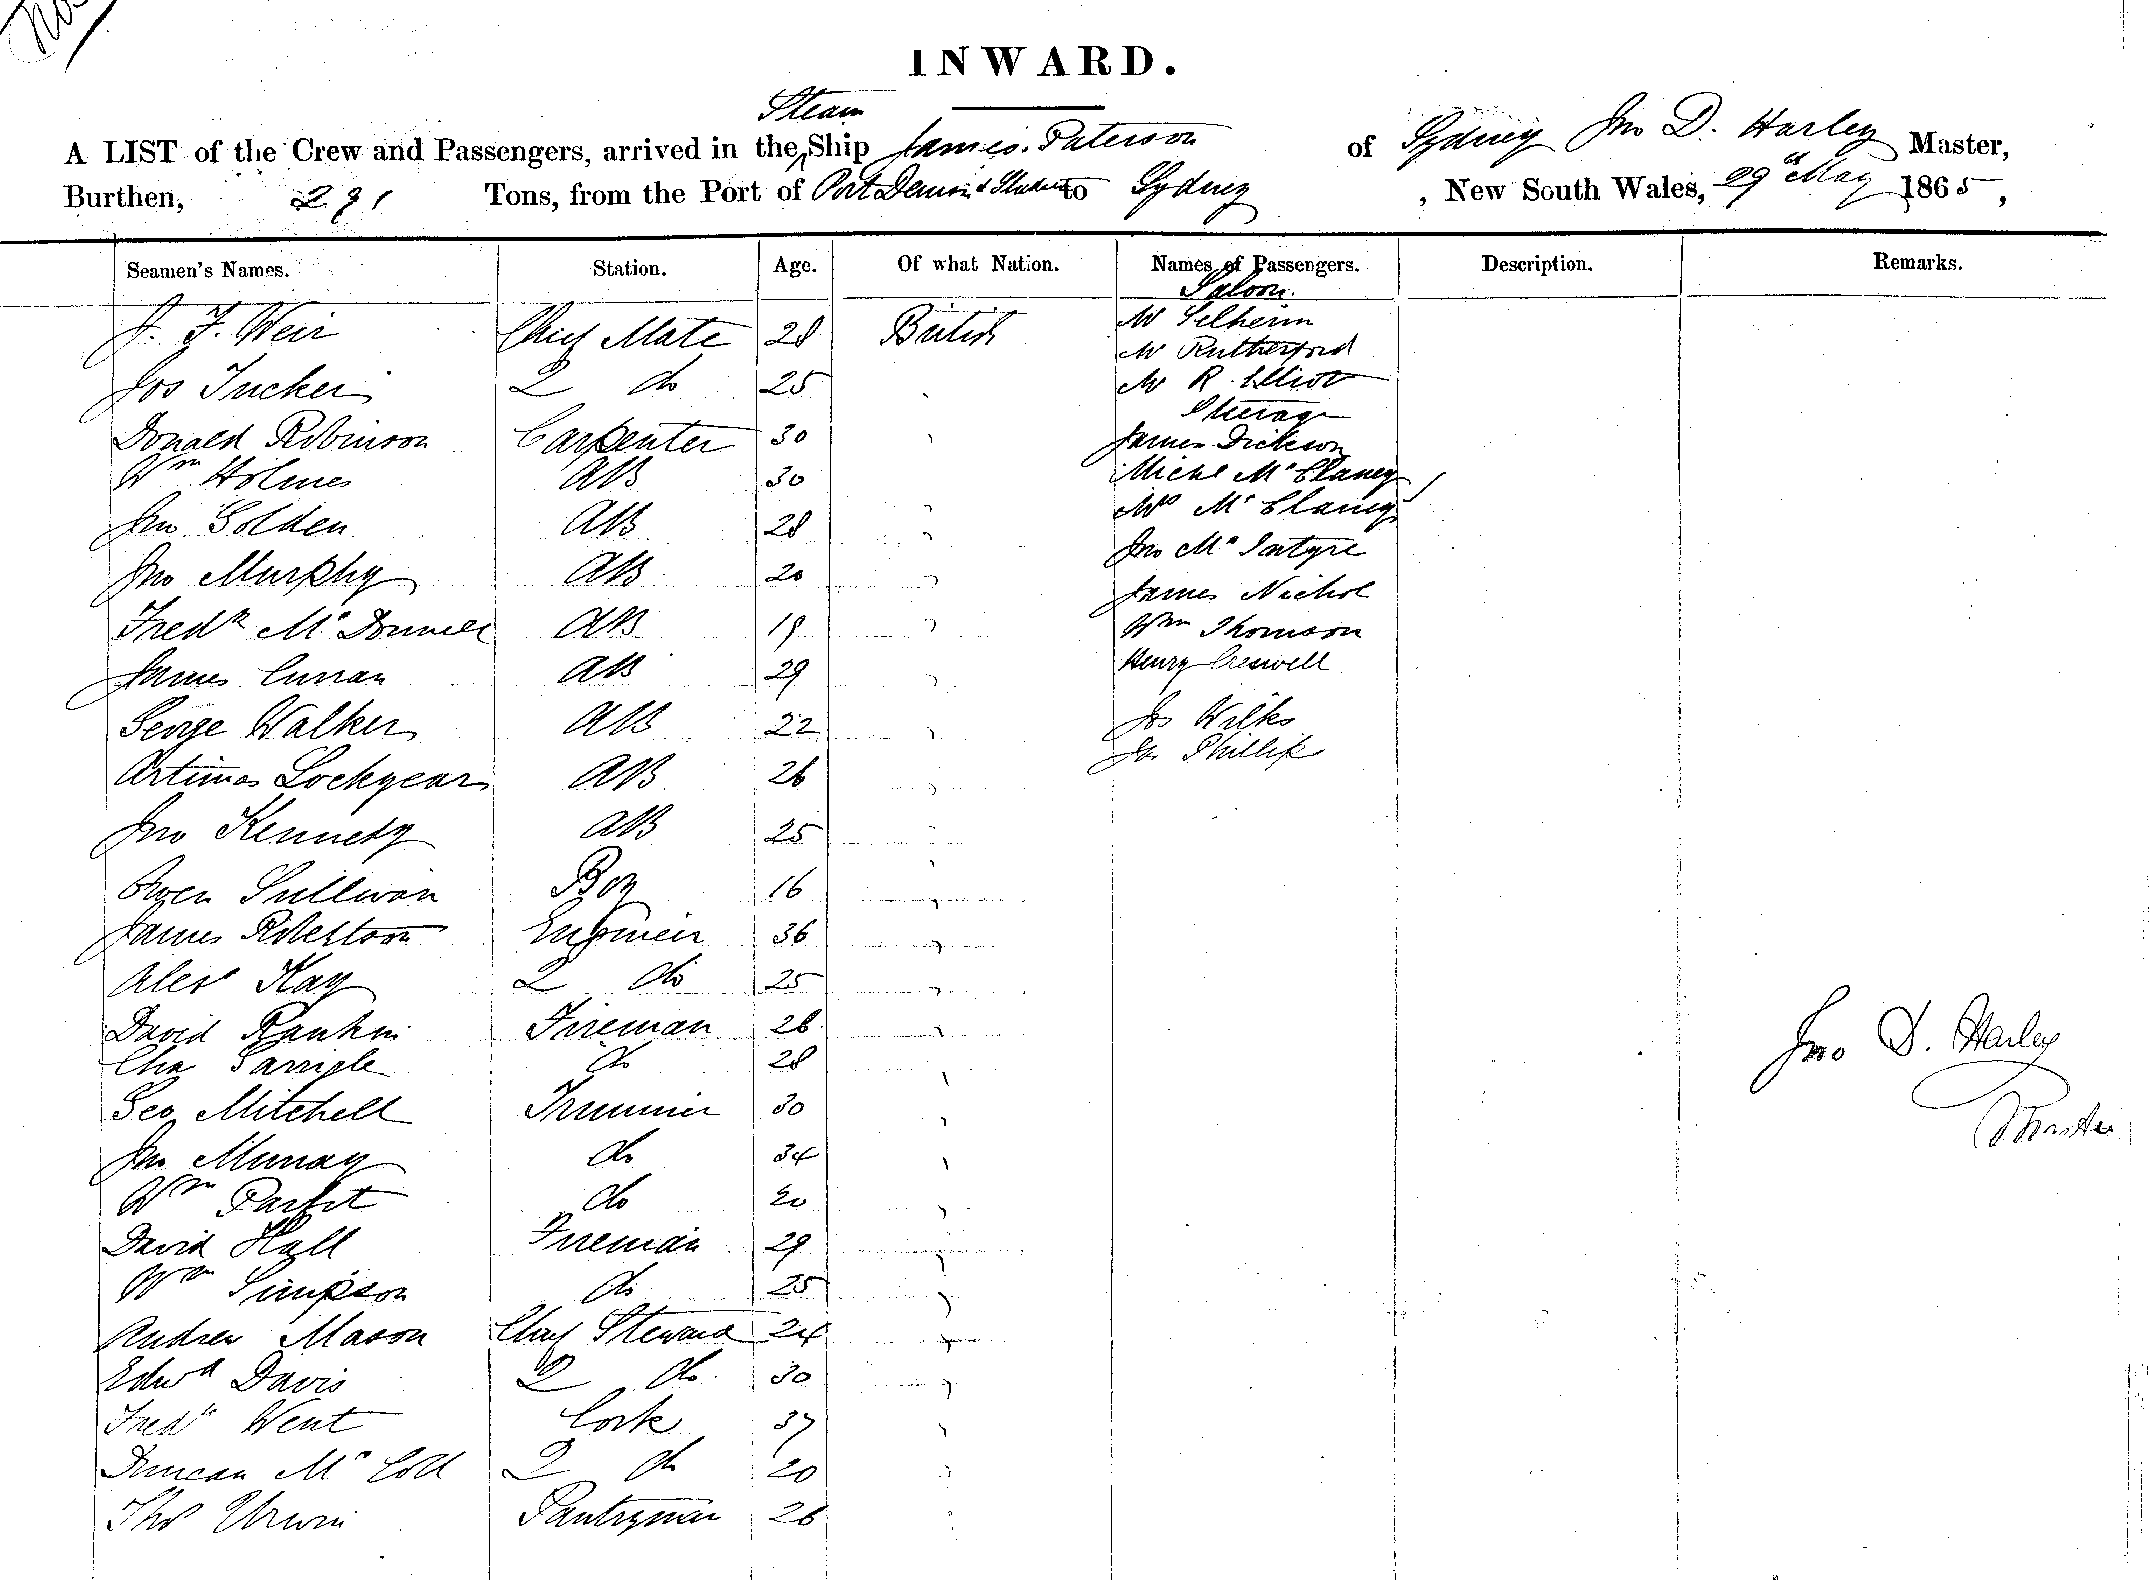 INWARD.
Steam
A LIST of the Crew and Passengers, arrived in the Ship James Paterson of Sydney Jno D. Harley Master,
Burthen, 291 Tons, from the Port of Port Denison & to Sydney , New South Wales, 29th May 1865,
Seamen's Names. Station. Age. Of what Nation. Names of Passengers. Description. Remarks.
Saloon.
J. F. Weir Chief Mate 28 British Mr Selheim
Mr Rutherford
Jos Tucker 2 do 25 Mr R. Elliot
Steerage
Donald Robinson Carpenter 30 James Dickson
Wm Holmes AB 30 Michl McClaney
Jno Golden AB 28 Mrs McClaney
Jno Murphy AB 20 Jno McIntyre
James Nichol
Fredk McDonnell AB 19 Wm Thomson
James Curran AB 29 Henry Creswell
George Walker AB 22 Jos Wilks
Artimas Lockyear AB 26 Jas Phillip
Jno Kennedy AB 25
Owen Sullivan Boy 16
James Robertson Engineer 36
Alexr Kay 2 do 25
David Rankin Fireman 26
Chas do 28
Geo Mitchell Trimmer 30
Jno Murray do 34
Wm Parfit do 20
David Hall Fireman 29
Wm Simpson do 25
Andrew Mason Chief Steward 24
Edwd Davis 2 do 30
Fredk Went Cook 37
Duncan McColl 2 do 20
Thos Urwin Pantryman 26
Jno D. Harley
Master